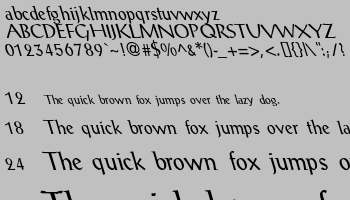 abcdefghijklmnopqrstuvwxyz
ABCDEFGHIJKLMNOPQRSTUVWXYZ
0123456789`~!@#$%^&*()-_+=>,<.[]{}/\":;/?
12 The quick brown fox jumps over the lazy dog.
18 The quick brown fox jumps over the la
24 The quick brown fox jumps o